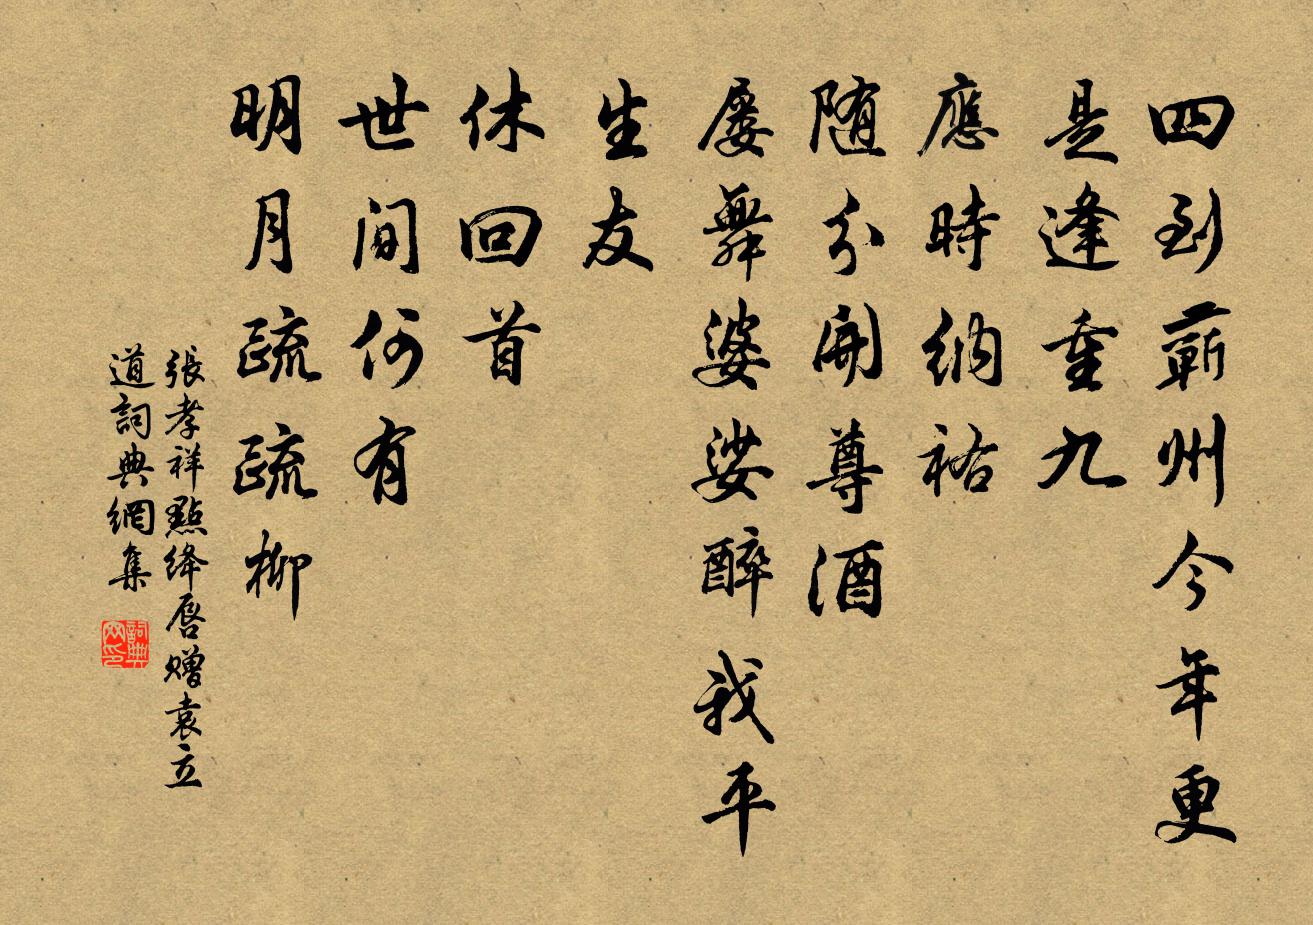 四到蘄州今年更
是逢重九
應時納祐
随分開尊酒
屡舞婆娑醉我平
生友
休回首
世間何有
明月疏疏柳
張孝祥點绛唇赠袁立
道詞典網集
詞典
网印